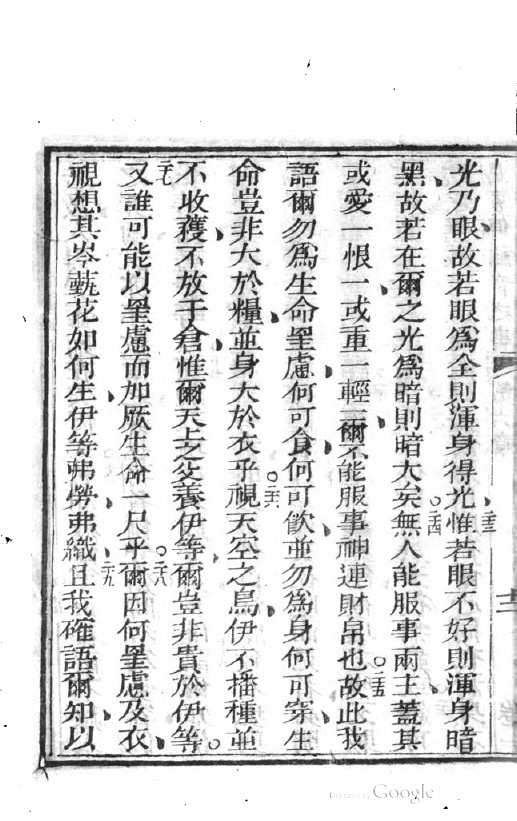 光乃眼故若眼爲全則渾身得光惟若眼不好則渾身暗
黑故若在爾之光爲暗則暗大矣無人能服事兩主蓋其
或愛一恨一或重一輕一爾不能服事神連財帛也故此我
語爾勿爲生命罣慮何可食何可飲並勿爲身何可穿生
命豈非大於糧並身大於衣乎視天空之鳥伊不播種並
不收穫不放于倉惟爾天上之父養伊等爾豈非貴於伊等
又誰可能以罣慮而加厥生命一尺乎爾因何罣慮及衣
視想其岑藝花如何生伊等弗勞弗織且我確語爾知以
二三
二四
二五
二六
二七
二八
二九
Digitized by Google